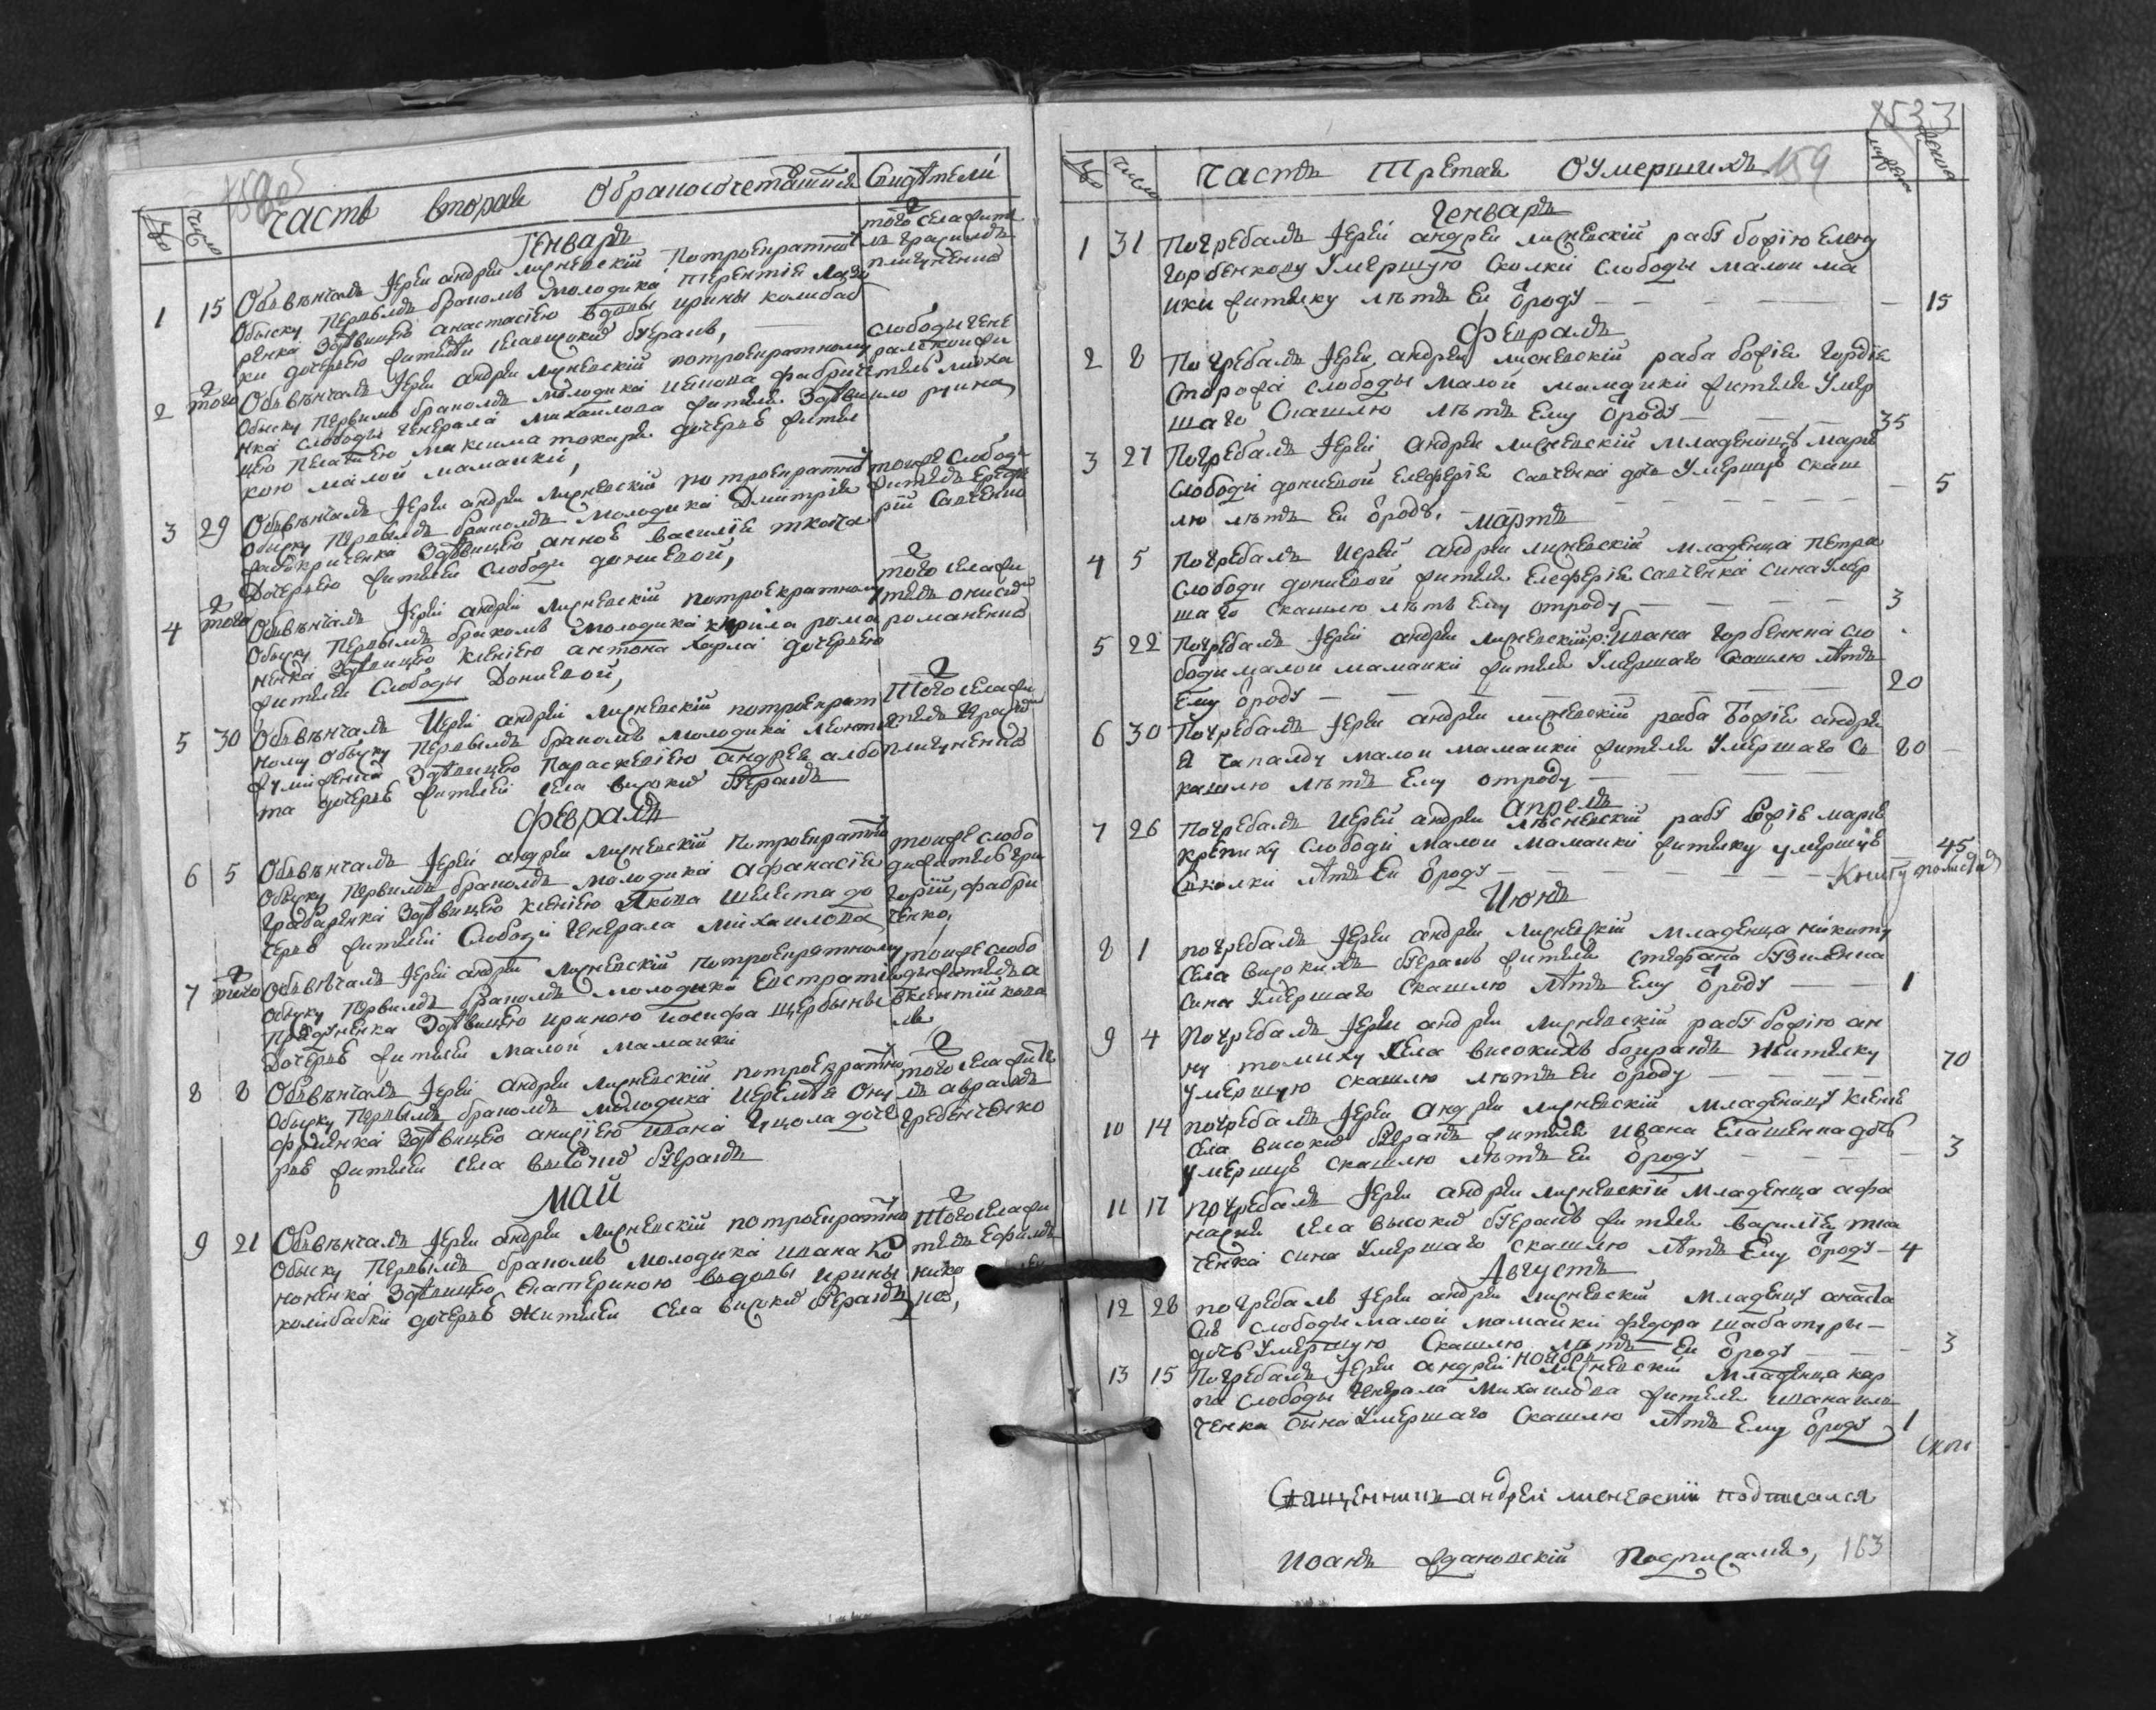 Часть вторая обракосочетавшихся Свидѣтели
№ число
Генварь
1 15 Обвѣнчалъ Іерей андрей лисневскій потроекратному
обыску первымъ бракомъ молодика терентія
ренка здѣвицею анастасіею вдовы ирины колибаб
ки дочерью жителей села високих буераков,
того села жите
ль герасимъ
плигуненко
2 того Обвѣнчалъ Іерей андрей лисневскій потроекратному
обыску первимъ бракомъ молодика
нка слободы генерала михаилова жителя здѣви
цею пелагіею максима токаря дочерью жител
кою малой мамайки,
слободы гене
ральской жи
тель миха
ило
3 29 Обвѣнчалъ Іерей андрей лисневскій потроекратному
обыску первымъ бракомъ молодика Дмитрія
здѣвицею анною василія ткача
дочерью жителей слободи дониевой,
тоей же слободи
житель
рій Савченко
4 того Обвѣнчалъ Іерей андрей лисневскій потроекратному
обыску первымъ бракомъ молодика кирила рома
ненка здѣвицею ксенією антона дочерью
жителей слободы Дониевой,
того села жи
тель
романенко
5 30 Обвѣнчалъ Иерей андрей лисневскій потроекрат
ному обыску первымъ бракомъ молодика
здѣвицею параскевіею андрея
та дочерью жителей села високих буераковъ
того села жи
тель герасим
плигуненко
Февраль
6 5 Обвѣнчалъ Іерей андрей лисневскій потроекратному
обыску первимъ бракомъ молодика афанасія
грабаренка здѣвицею ксенією якова шелеста до
черью жителей слободи генерала михаилова
тоей же слобо
ди житель гри
горій, фабри
ченко,
7 того Обвѣнчалъ Іерей андрей лисневскій потроекратному
обыску первимъ бракомъ молодика Евстратія
здѣвицею ириною иосифа щербины
дочерью жителей малой мамайки
тоей же слобо
ди житель а
вксентій кова
ль
8 8 Обвѣнчалъ Іерей андрей лисневскій потроекратному
обыску первымъ бракомъ молодика иеремѣя ону
фріенка здѣвицею анисіею ивана гуцола доче
рью жителей села високих буераковъ
того села жите
ль аврамъ
гребенченко
май
9 21 Обвѣнчалъ Іерей андрей лисневскій потроекратному
обыску первымъ бракомъ молодика ивана ко
ноненка здѣвицею екатериною вдовы ирины
колибабки дочерью жителей села високих буераковъ
того села жи
тель Ефимъ
нико
ко,
1533
№ число Часть третая оумершихъ 159
Генварь
1 31 Погребалъ Іерей андрей лисневскій рабу божію елену
горбенкову умершую сколки слободы малой ма
йки жителку лѣтъ ей ѿроду — 15
Февраль
2 8 Погребалъ Іерей андрей лисневскій раба божія гордія
сторожа слободы малой мамайки жителя умер
шаго скашлю лѣтъ ему ѿроду — 35
3 27 Погребалъ Іерей андрей лисневскій младеницу марію
слободи дониевой елефтерія савченка дочь умершую скаш
лю лѣтъ ей ѿроду. — 5
мартъ
4 5 Погребалъ Иерей андрей лисневскій младенца петра
слободи дониевой жителя елефтерія савченка сина умер
шаго скашлю лѣтъ ему отроду — 3
5 22 Погребалъ Іерей андрей лисневскій р: б ивана горбенка сло
боди малой мамайки жителя умершаго скашлю лѣтъ
ему ѿроду — 20
6 30 Погребалъ Іерей андрей лисневскій раба божія андре
я чапалду малой мамайки жителя умершаго с
кашлю лѣтъ ему отроду — 80
апрель
7 26 Погребалъ Иерей андрей лисневскій рабу божію марію
слободи малой мамайки жителку умершую
сколки лѣтъ ей ѿроду — 45
Июнь
8 1 погребалъ Іерей андрей лисневскій младенца никиту
села високихъ буераков жителя стефана
сина умершаго скашлю лѣтъ ему ѿроду — 1
9 4 Погребалъ Іерей андрей лисневскій рабу божію ан
ну томиху села високихъ боираковъ жителку
умершую скашлю лѣтъ ей ѿроду — 70
10 14 погребалъ Іерей андрей лисневскій младеницу ксенію
села високих буераковъ жителя ивана дочь
умершую скашлю лѣтъ ей ѿроду — 3
11 17 погребалъ Іерей андрей лисневскій младенца афа
насия села високих буераков жителя василія тка
ченка сина умершаго скашлю лѣтъ ему ѿроду — 4
Августъ
12 28 погребалъ Іерей андрей лисневскій младеницу анаста
сію слободы малой мамайки федора шабатуры —
дочь умершую скашлю лѣтъ ей ѿроду — 3
ноябрь
13 15 Погребалъ Іерей андрей лисневскій младенца кар
па слободы генерала михаилова жителя ивана
ченка сына умершаго скашлю лѣтъ ему ѿроду 1
Священникъ андрей лисневскій подписался
Иоанъ ждановскій подписался, 163